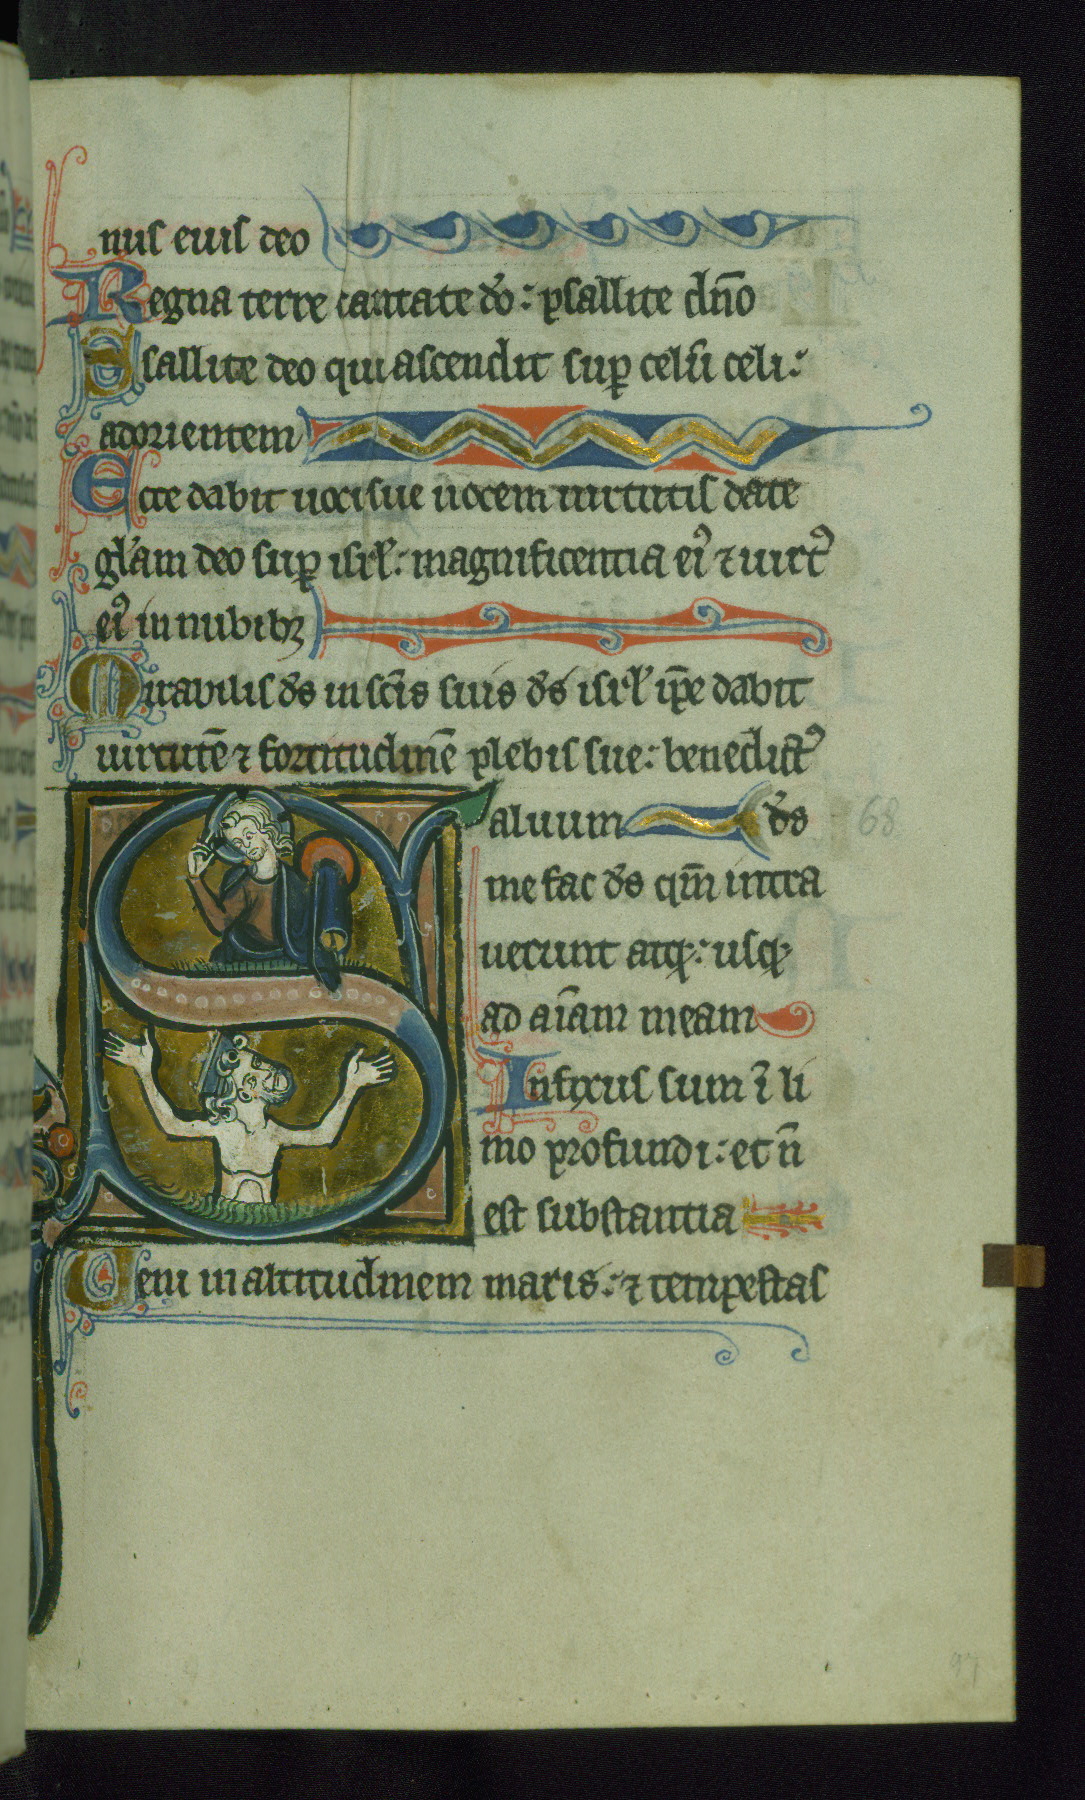 nus euis deo
Regna terre cantate dõ: psallite dño
Psallite deo qui ascendit sup celũ celi:
ad orientem
Ecce dabit uoci sue uocem uirtutis date
glam deo sup isrl: magnificentia eiꝰ ⁊ uirtꝰ
eiꝰ in nubibꝫ
Mirabilis ds in scis suis ds isrl ipe dabit
uirtutē ⁊ fortitudinē plebis sue: benedictꝰ
Saluum ds 68
me fac ds qm̄ intra
uerunt atqꝫ: usqꝫ
ad aīam meam
Infixus sum ī li
mo profundi: et ñ
est substantia
Ueni in altitudinem maris: ⁊ tempestas
97